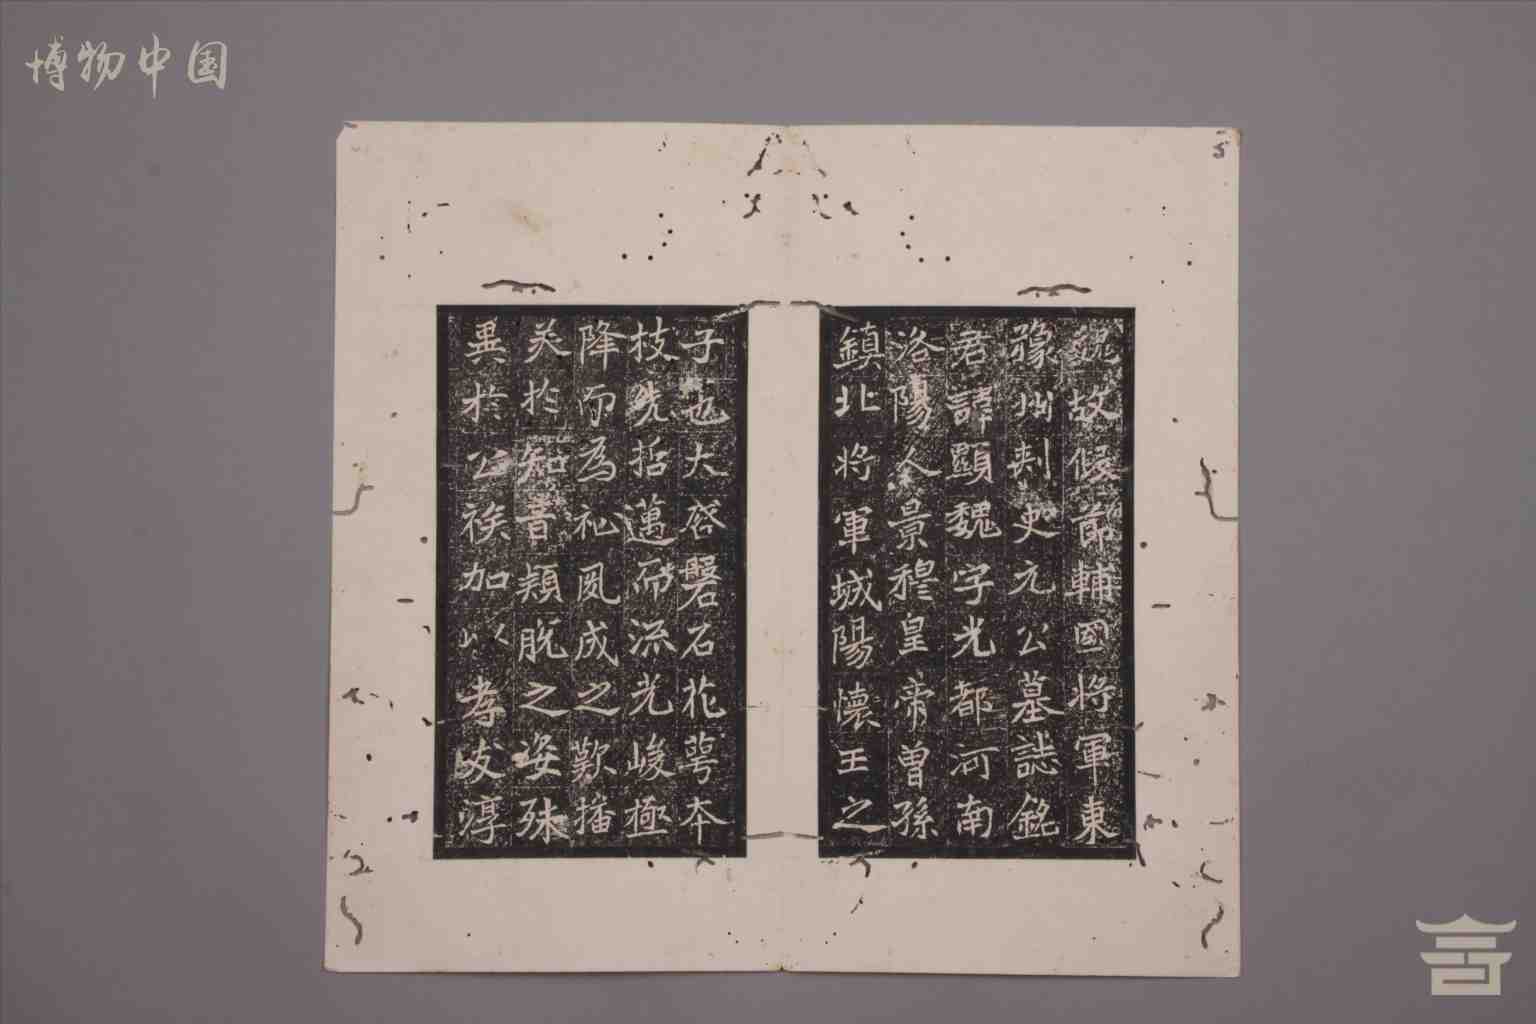 博物中国
魏故假節輔國將軍東
豫州刺史元公墓誌銘
君諱顯魏字光都河南
洛陽人景穆皇帝曾孫
鎮北將軍城陽懷王之
子也大啓磐石花萼本
枝先哲邁而流光峻極
降而為祉夙成之歎播
美於知音頴脫之姿殊
異於公族加以孝友淳